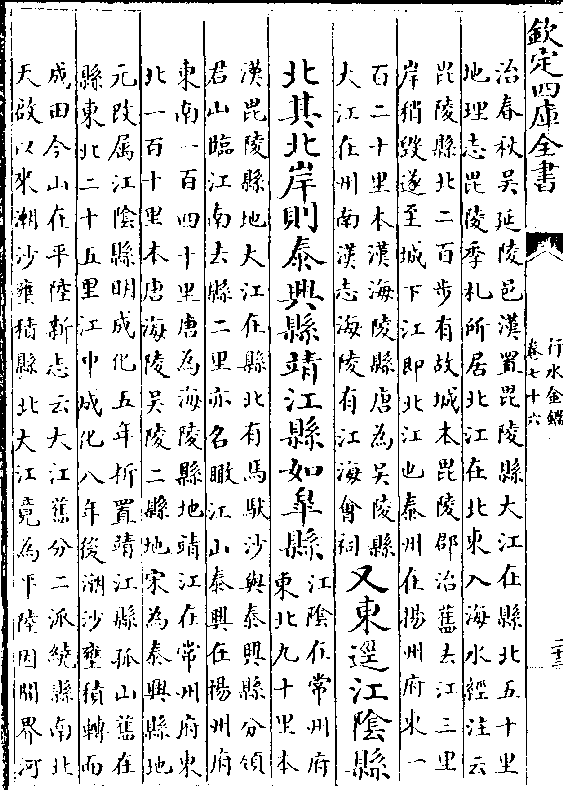 欽定四庫全書
行水金鑑
卷七十六
二十三
治春秋吳延陵邑漢置毘陵縣大江在縣北五十里
地理志毘陵季札所居北江在北東入海水經注云
毘陵縣北二百步有故城本毘陵郡治舊去江三里
岸稍毀遂至城下江即北江也泰州在揚州府東一
百二十里本漢海陵縣唐為吳陵縣
大江在州南漢志海陵有江海會祠
又東逕江陰縣
北其北岸則泰興縣靖江縣如臯縣
江陰在常州府
東北九十里本
漢毘陵縣地大江在縣北有馬馱沙與泰興縣分領
君山臨江南去縣二里亦名瞰江山泰興在揚州府
東南一百四十里唐為海陵縣地靖江在常州府東
北一百十里本唐海陵吳陵二縣地宋為泰興縣地
元改属江陰縣明成化五年析置靖江縣孤山舊在
縣東北二十五里江中成化八年後潮沙壅積轉而
成田今山在平陸新志云大江舊分二派繞縣南北
天啟以來潮沙壅積縣北大江竟為平陸因開界河